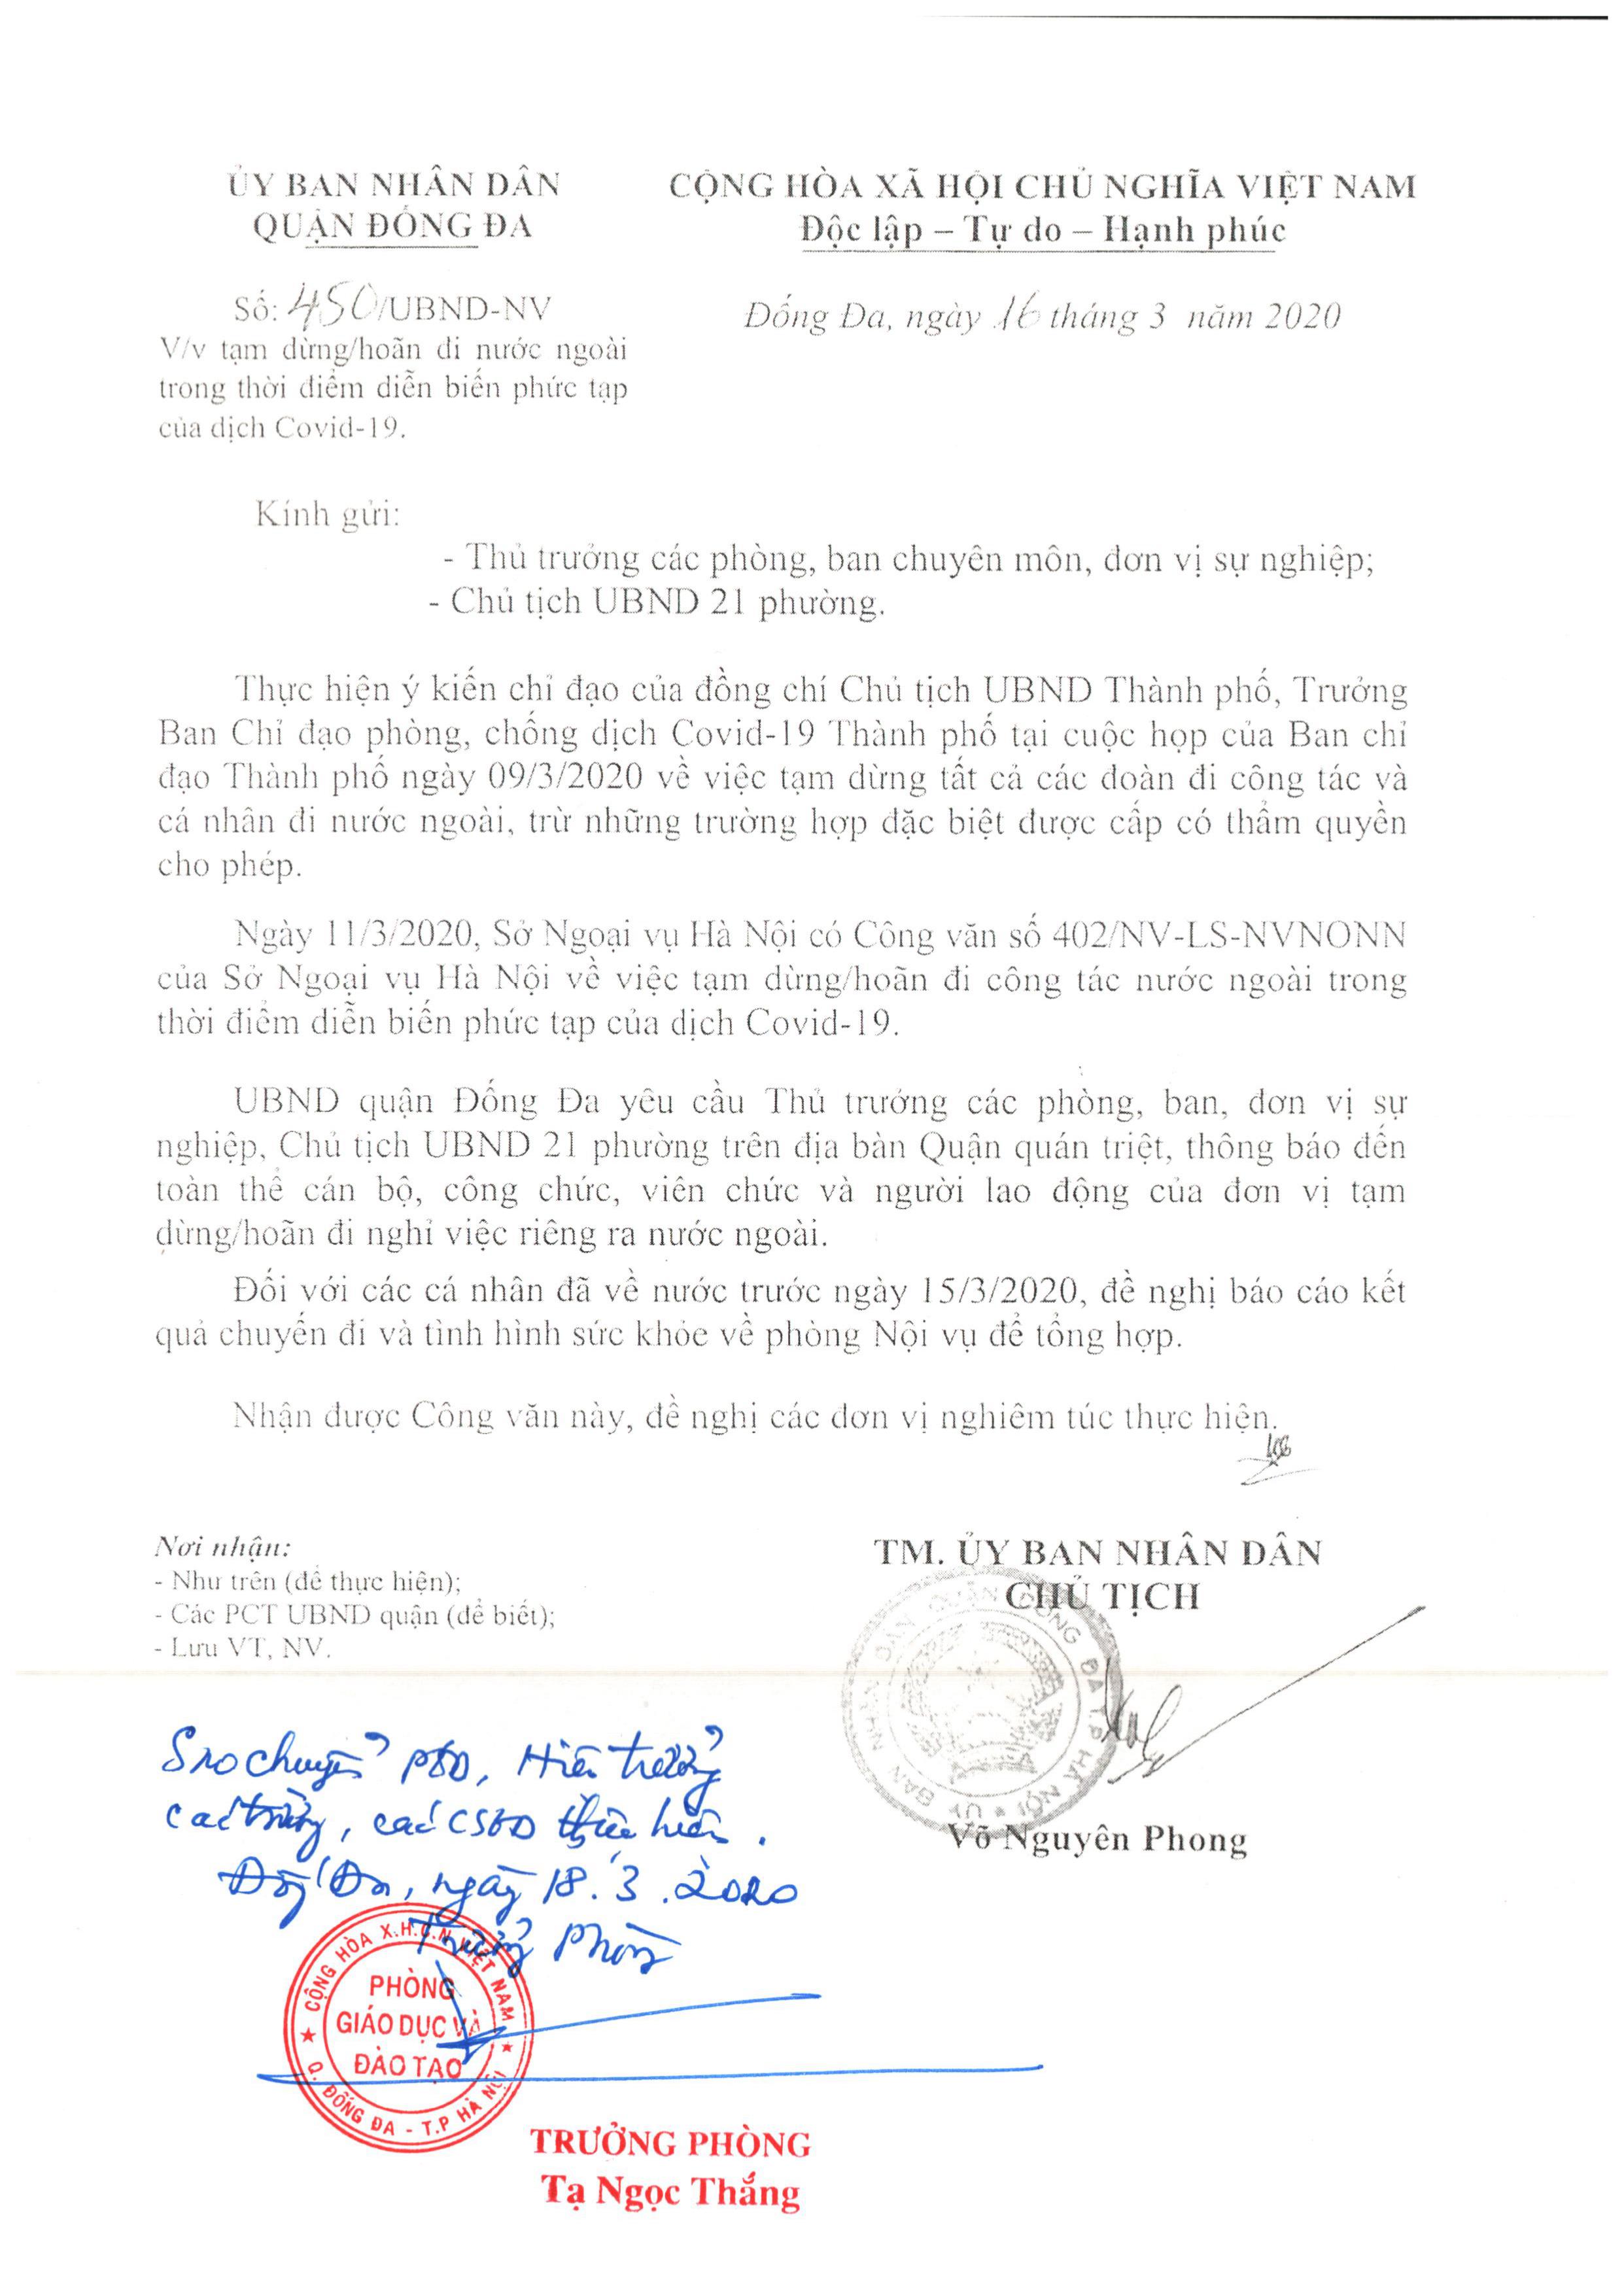 ỦY BAN NHÂN DÂN
QUẬN ĐỐNG ĐA
CỘNG HÒA XÃ HỘI CHỦ NGHĨA VIỆT NAM
Độc lập – Tự do – Hạnh phúc
Số: 450/UBND-NV
V/v tạm dừng/hoãn đi nước ngoài
trong thời điểm diễn biến phức tạp
của dịch Covid-19.
Đống Đa, ngày 16 tháng 3 năm 2020
Kính gửi:
- Thủ trưởng các phòng, ban chuyên môn, đơn vị sự nghiệp;
- Chủ tịch UBND 21 phường.
Thực hiện ý kiến chỉ đạo của đồng chí Chủ tịch UBND Thành phố, Trưởng
Ban Chỉ đạo phòng, chống dịch Covid-19 Thành phố tại cuộc họp của Ban chỉ
đạo Thành phố ngày 09/3/2020 về việc tạm dừng tất cả các đoàn đi công tác và
cá nhân đi nước ngoài, trừ những trường hợp đặc biệt được cấp có thẩm quyền
cho phép.
Ngày 11/3/2020, Sở Ngoại vụ Hà Nội có Công văn số 402/NV-LS-NVNONN
của Sở Ngoại vụ Hà Nội về việc tạm dừng/hoãn đi công tác nước ngoài trong
thời điểm diễn biến phức tạp của dịch Covid-19.
UBND quận Đống Đa yêu cầu Thủ trưởng các phòng, ban, đơn vị sự
nghiệp, Chủ tịch UBND 21 phường trên địa bàn Quận quán triệt, thông báo đến
toàn thể cán bộ, công chức, viên chức và người lao động của đơn vị tạm
dừng/hoãn đi nghỉ việc riêng ra nước ngoài.
Đối với các cá nhân đã về nước trước ngày 15/3/2020, đề nghị báo cáo kết
quả chuyến đi và tình hình sức khỏe về phòng Nội vụ để tổng hợp.
Nhận được Công văn này, đề nghị các đơn vị nghiêm túc thực hiện.
Nơi nhận:
- Như trên (để thực hiện);
- Các PCT UBND quận (để biết);
- Lưu VT, NV.
TM. ỦY BAN NHÂN DÂN
CHỦ TỊCH
ỦY BAN NHÂN DÂN QUẬN ĐỐNG ĐA T.P HÀ NỘI
Võ Nguyên Phong
Sao chuyển PGD, Hiệu trưởng
các trường, các CSGD thực hiện.
Đống Đa, ngày 18.3.2020
Trưởng Phòng
CỘNG HÒA X.H.C.N VIỆT NAM
PHÒNG
GIÁO DỤC VÀ
ĐÀO TẠO
Q. ĐỐNG ĐA - T.P HÀ NỘI
TRƯỞNG PHÒNG
Tạ Ngọc Thắng